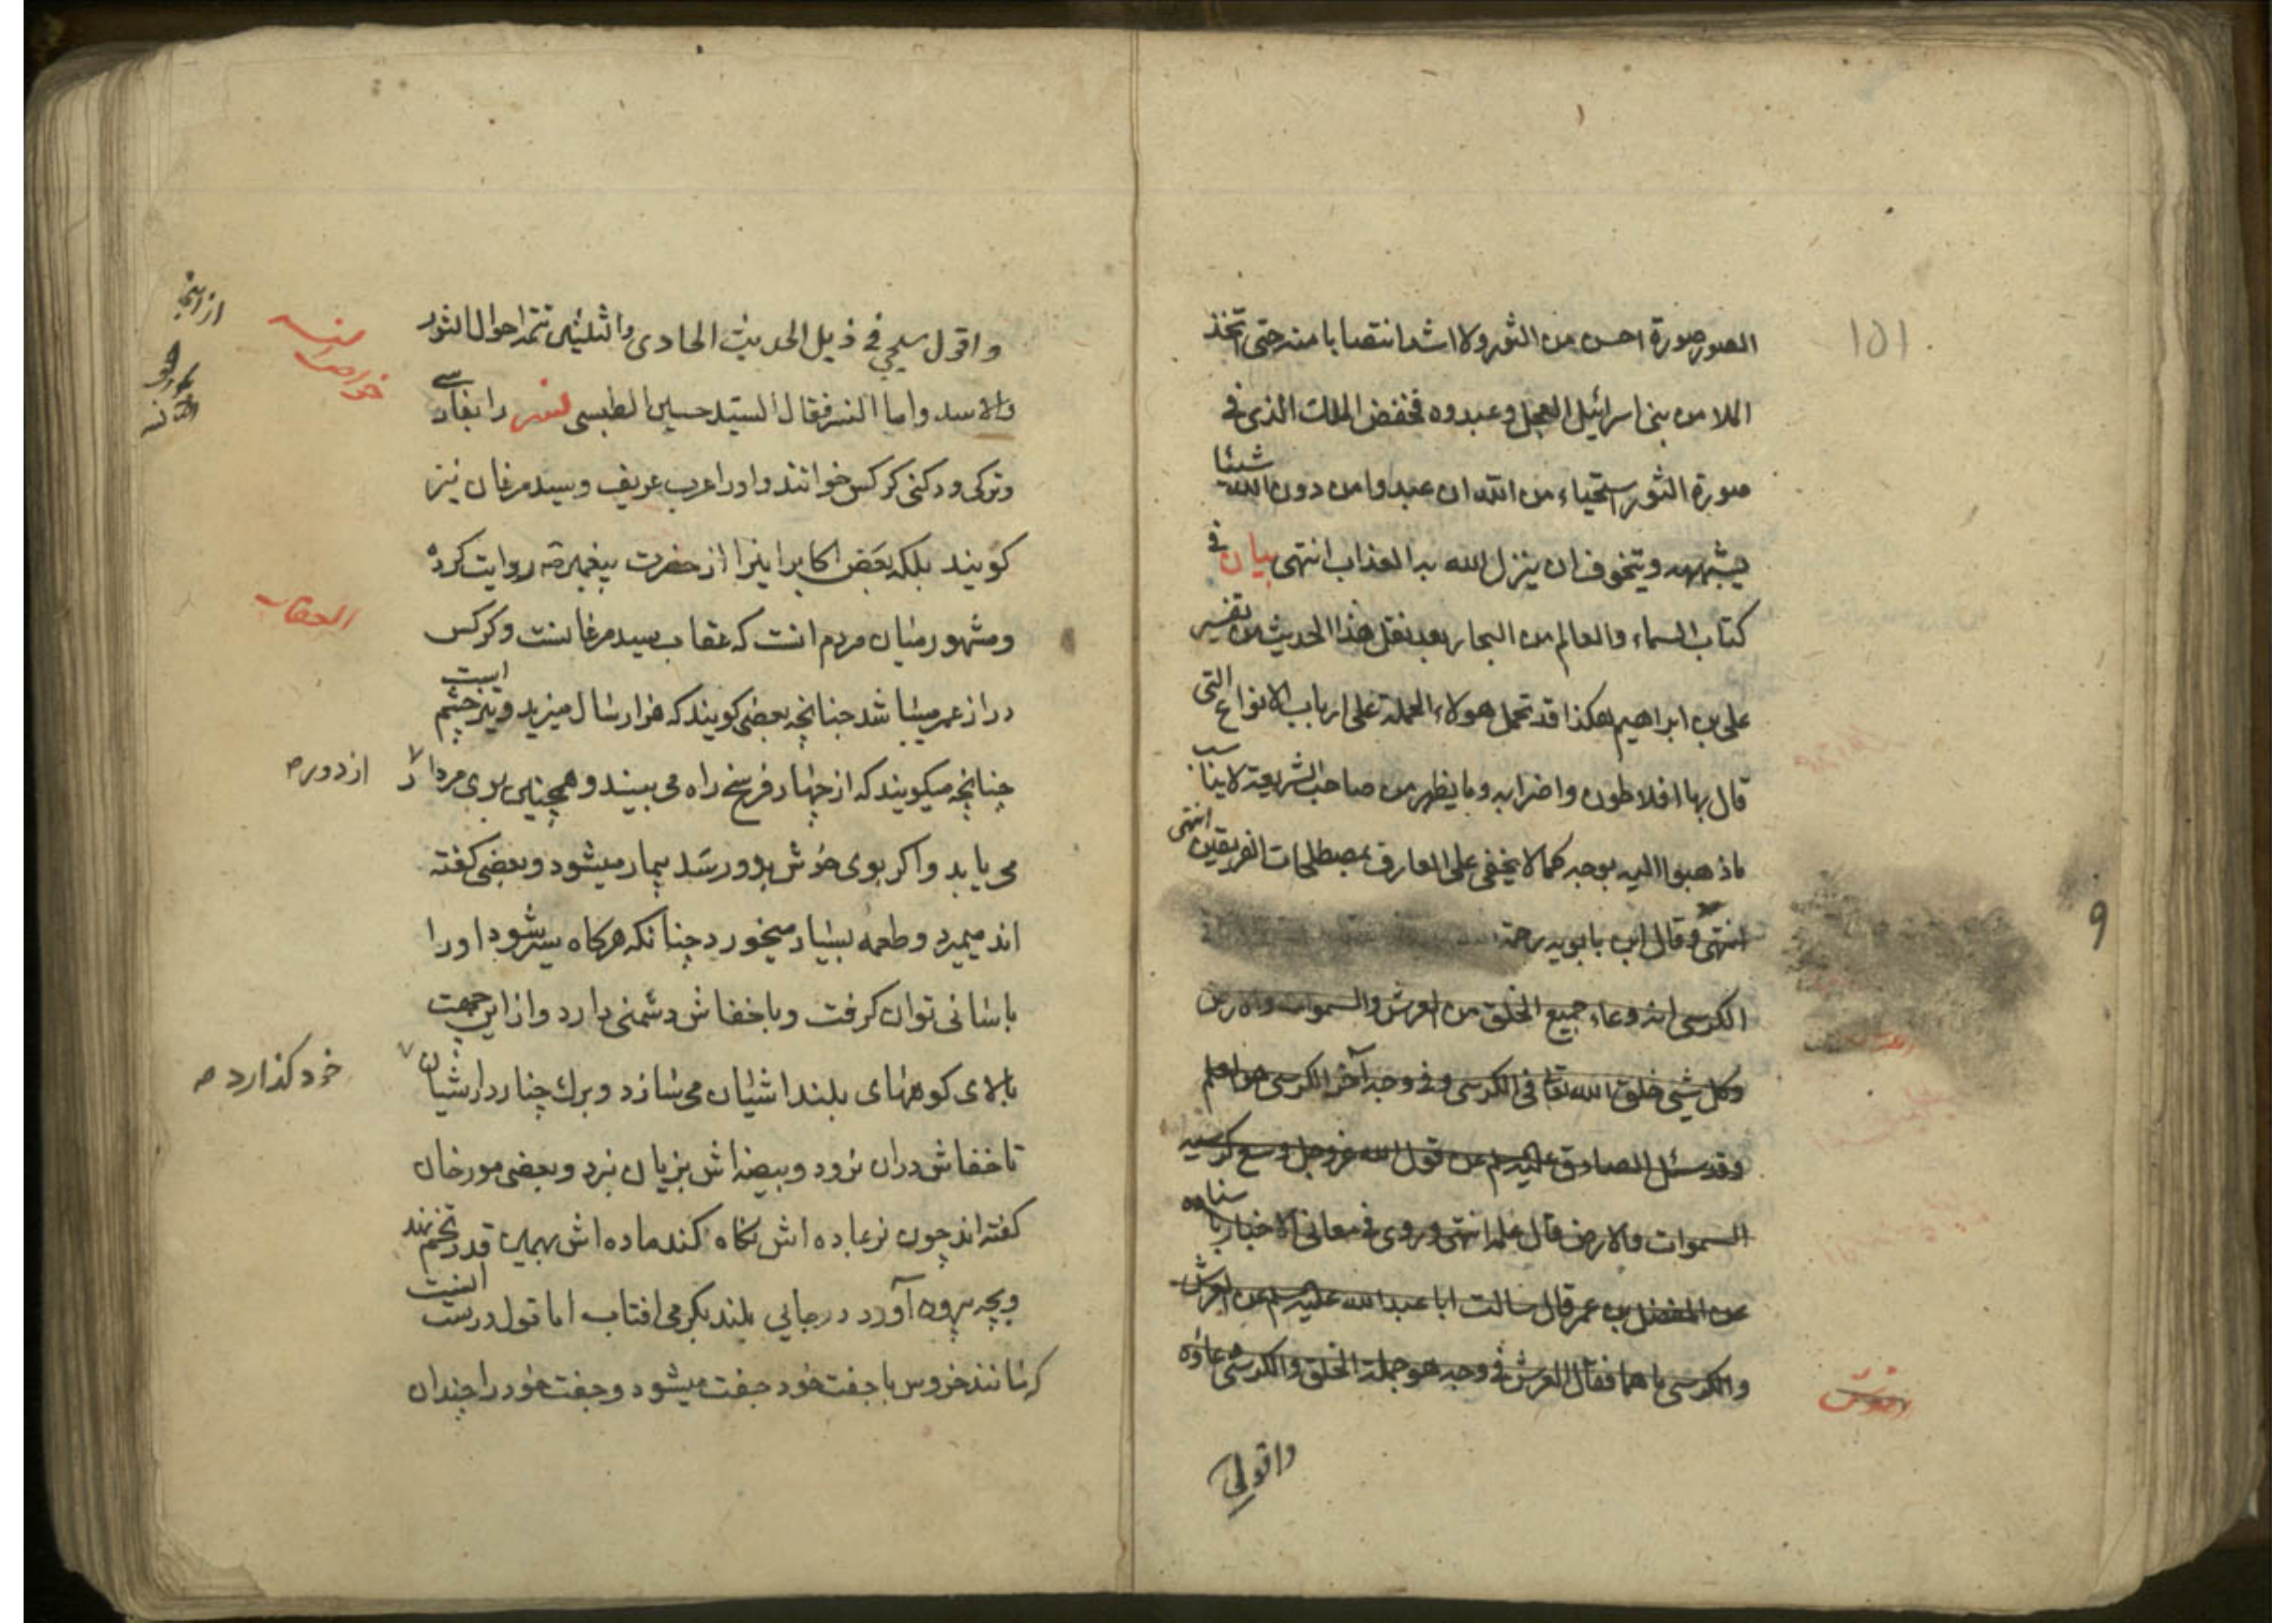 الصور صورة احسن من الثور ولا اشد انتصابا منه حتى اتخذ
١٥١
الملا من بنى اسرائيل العجل وعبدوه فخفض الملك الذى فى
صورة الثور استحياء من الله ان عبدوا من دون الله شيئا
يشبهه ويتخوف ان ينزل الله به العذاب انتهى بيان فى
كتاب السماء والعالم من البحار بعد نقل هذا الحديث من تفسير
على بن ابراهيم هكذا قد تحمل هولاء الحملة على ارباب الانواع التى
قال بها افلاطون واضرابه وما يظهر من صاحب الشريعة لا يناسب
ماذهبوا اليه بوجه كما لا يخفى على العارف بمصطلحات الفريقين انتهى
انتهى وقال ابن بابويه رحمه
9
الكرسى انه وعاء جميع الخلق من العرش والسموات والارض
وكل شىء خلق الله تعا فى الكرسى وفى وجه آخر الكرسى هو العلم
وقد سئل الصادق عليه السلم عن قول الله عز وجل وسع كرسيه
السموات والارض قال علمه انتهى وروى فى معانى الاخبار باسناده
عن المفضل بن عمر قال سالت ابا عبد الله عليه السلم عن العرش
والكرسى ما هما فقال العرش فى وجه هو جملة الخلق والكرسى وعاؤه
العرش
واقول
واقول سيجئ فى ذيل الحديث الحادى والثلثين تتمه احوال الثور
والاسد واما النسر فقال السيد حسين الطبسى نسر را بفارسى
وتركى ودكنى كركس خوانند واورا عرب عريف وسيد مرغان نيز
كويند بلكه بعض اكابر اينرا از حضرت پيغمبر ص روايت كرده
ومشهور ميان مردم انست كه عقاب سيد مرغانست وكركس
العقاب
دراز عمر ميباشد چنانچه بعضى كويند كه هزار سال ميزيد وتيز چشم است
چنانچه ميكويند كه از چهار فرسخ راه مى بيند وهمچنين بوى مردار
از دور ه
مى يابد واكر بوى خوش باو رسد بيمار ميشود وبعضى كفته
اند ميميرد وطعمه بسيار ميخورد چنانكه هركاه سير شود اورا
باسانى توان كرفت وبا خفاش دشمنى دارد واز اين جهت
بالاى كوههاى بلند اشيان مى سازد وبرك چنار در اشيان
خود كذارد ه
تا خفاش دران نرود وبيضه اش بزيان نبرد وبعضى مورخان
كفته اند چون نر بماده اش نكاه كند ماده اش بهمين قدر تخم نهد
وبچه بيرون آورد در جايى بلند بكرمى افتاب اما قول درست انست
كه مانند خروس با جفت خود جفت ميشود وجفت خود را چندان